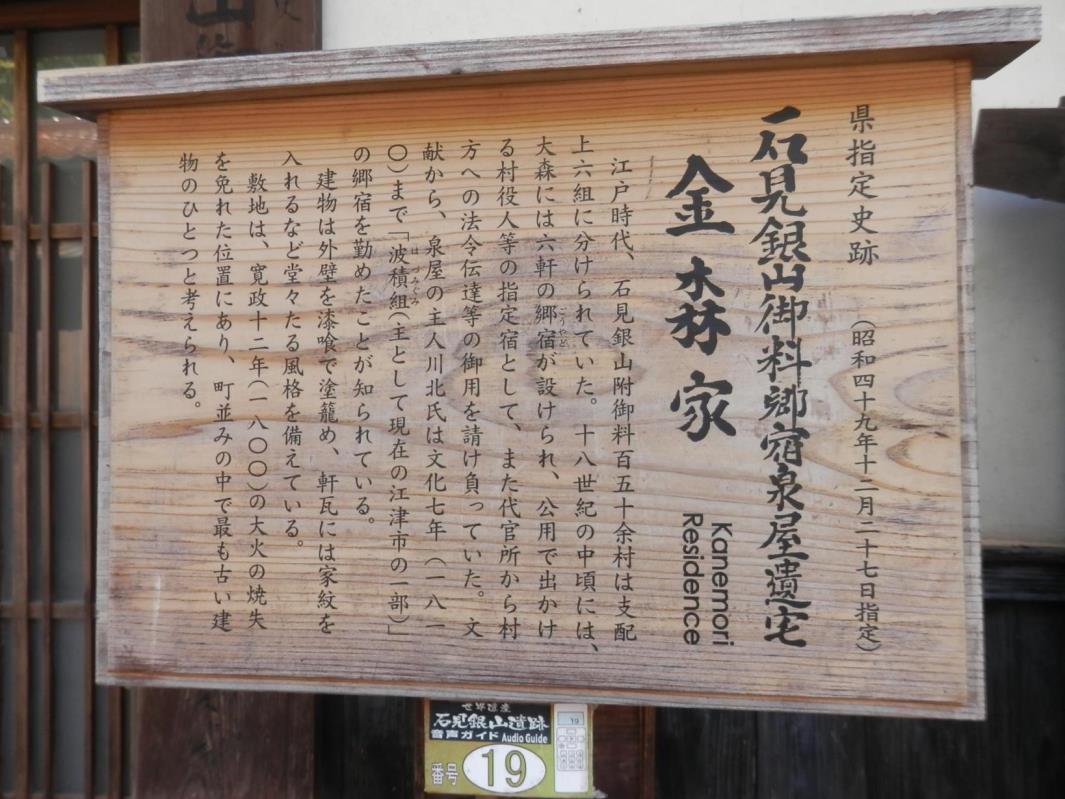 県指定史跡 (昭和四十九年十二月二十七日指定)
石見銀山御料郷宿泉屋遺宅
金森家
Kanemori
Residence
江戸時代、石見銀山附御料百五十余村は支配
上六組に分けられていた。十八世紀の中頃には、
大森には六軒の郷宿が設けられ、公用で出かけ
ごうやど
る村役人等の指定宿として、また代官所から村
方への法令伝達等の御用を請け負っていた。文
献から、泉屋の主人川北氏は文化七年(一八一
〇)まで「波積組(主として現在の江津市の一部)」
はづみぐみ
の郷宿を勤めたことが知られている。
建物は外壁を漆喰で塗籠め、軒瓦には家紋を
入れるなど堂々たる風格を備えている。
敷地は、寛政十二年(一八〇〇)の大火の焼失
を免れた位置にあり、町並みの中で最も古い建
物のひとつと考えられる。
世界遺産
石見銀山遺跡
音声ガイド Audio Guide
番号 19
19